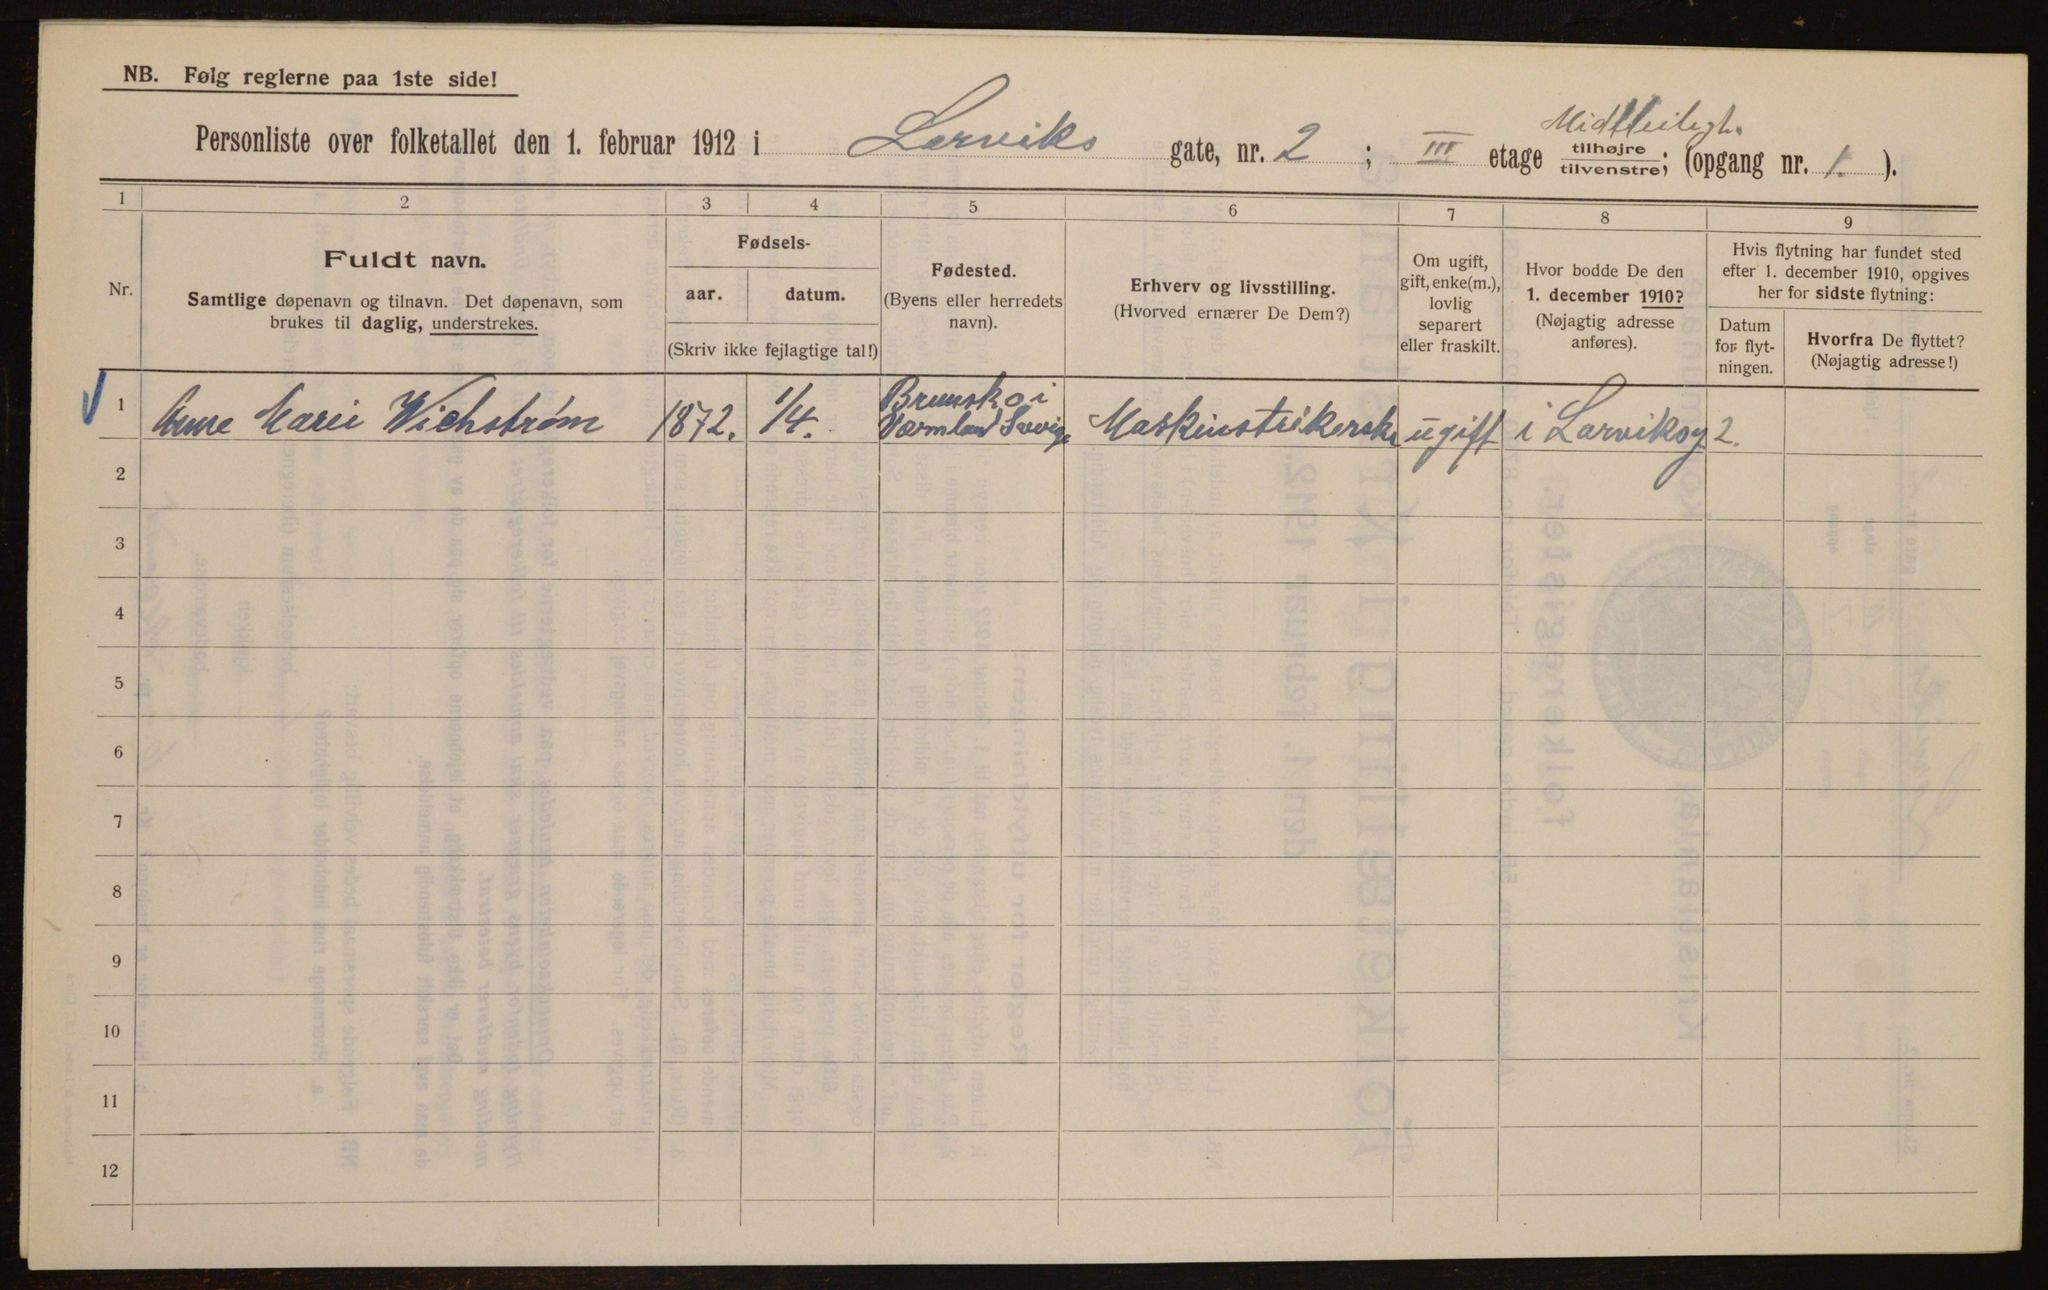 NB. Følg reglerne paa 1ste side!
Midtleiligh.
Personliste over folketallet den 1. februar 1912 i Larviks gate, nr. 2 ; III etage tilhøjre/tilvenstre; (opgang nr. 1. ).
1 2 3 4 5 6 7 8 9
Nr.
Fuldt navn.
Samtlige døpenavn og tilnavn. Det døpenavn, som
brukes til daglig, understrekes.
Fødsels-
aar. datum.
(Skriv ikke fejlagtige tal!)
Fødested.
(Byens eller herredets
navn).
Erhverv og livsstilling.
(Hvorved ernærer De Dem?)
Om ugift,
gift, enke(m.),
lovlig
separert
eller fraskilt.
Hvor bodde De den
1. december 1910?
(Nøjagtig adresse
anføres).
Hvis flytning har fundet sted
efter 1. december 1910, opgives
her for sidste flytning:
Datum
for flyt-
ningen.
Hvorfra De flyttet?
(Nøjagtig adresse!)
1 Anne Marie Wichstrøm 1872. 1/4. Brunsko i
Værmland Sverige Maskinstrikerske ugift i Larviksg 2.
2
3
4
5
6
7
8
9
10
11
12